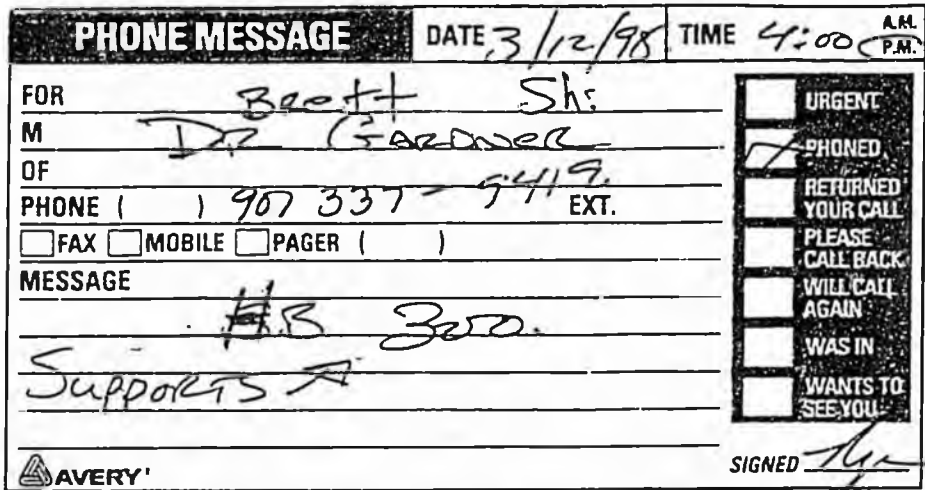 PHONE MESSAGE DATE 3/12/98 TIME 4:00 A.M. P.M.
FOR
M DR GARDNER
OF
PHONE ( ) 907 337-9419 EXT.
FAX MOBILE PAGER ( )
MESSAGE
H.B
Supports
AVERY
URGENT
PHONED
RETURNED YOUR CALL
PLEASE CALL BACK
WILL CALL AGAIN
WAS IN
WANTS TO SEE YOU
SIGNED